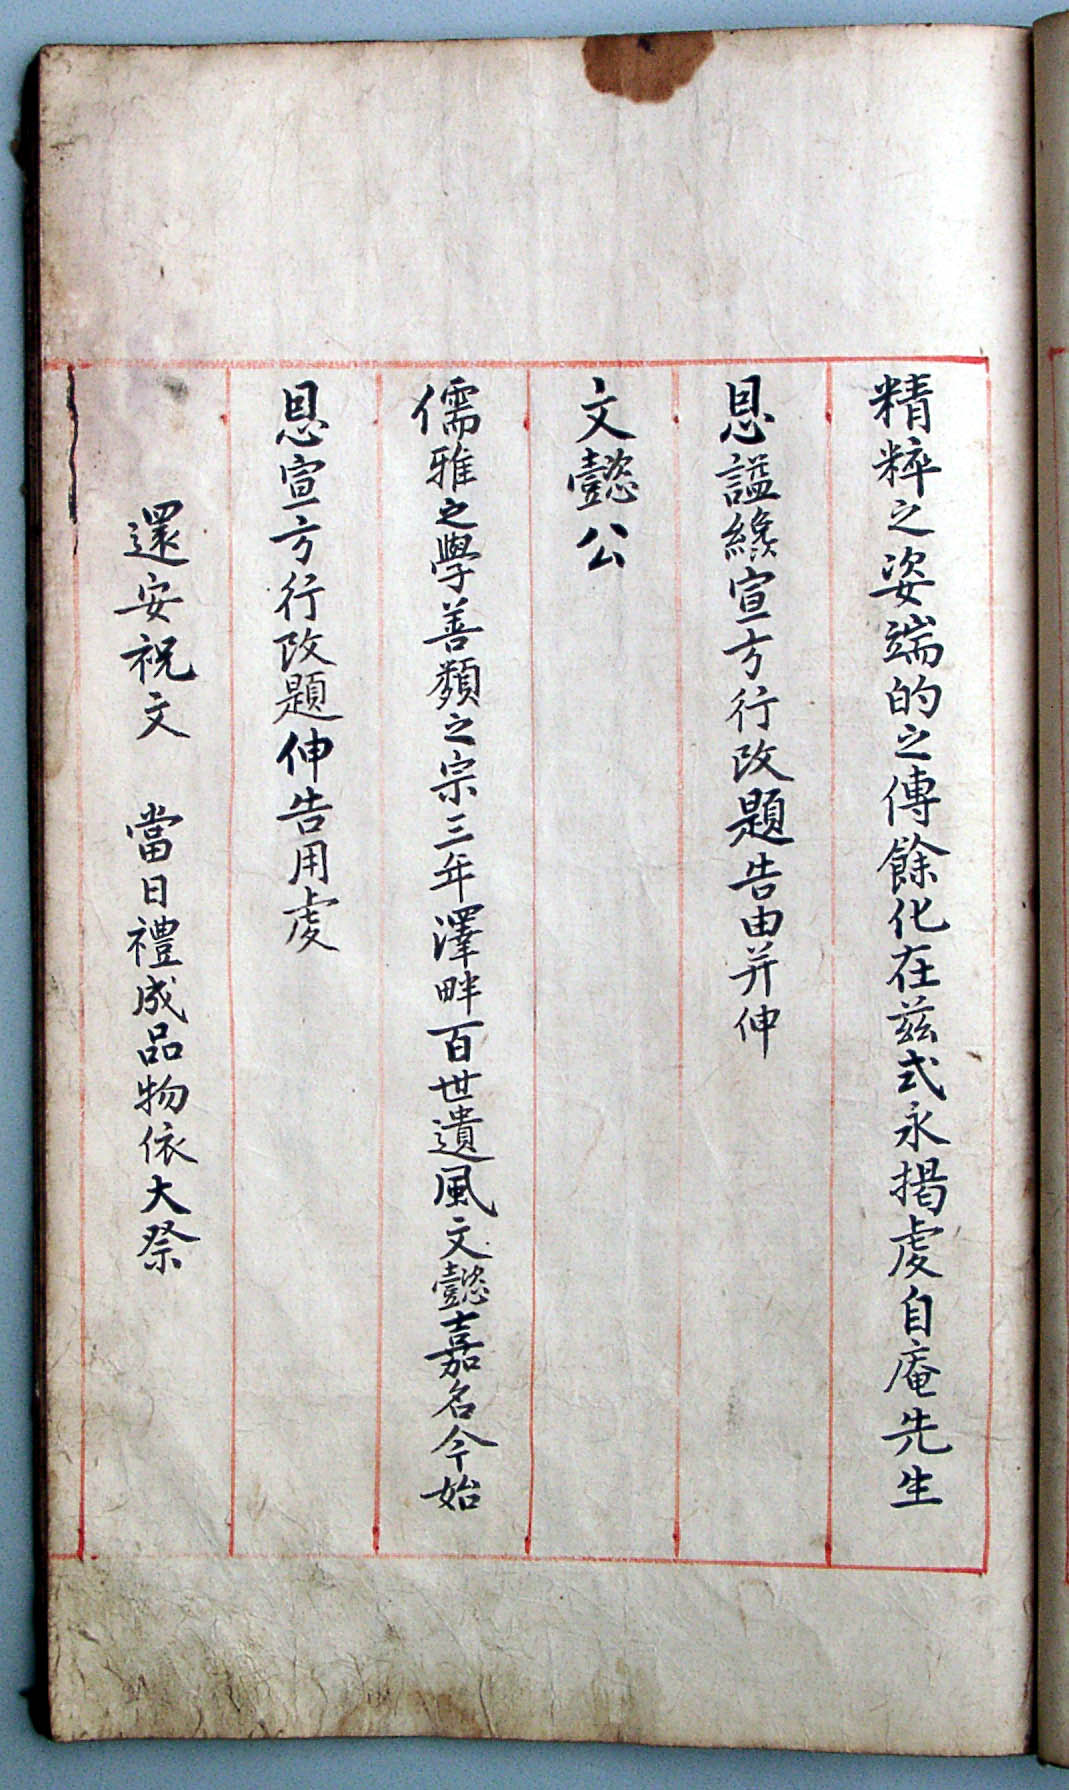 精粹之姿端的之傳餘化在玆式永揭虔自庵先生
恩謚纔宣方行改題告由并伸
文懿公
儒雅之學善類之宗三年澤畔百世遺風文懿嘉名今始
恩宣方行改題伸告用虔
還安祝文 當日禮成品物依大祭